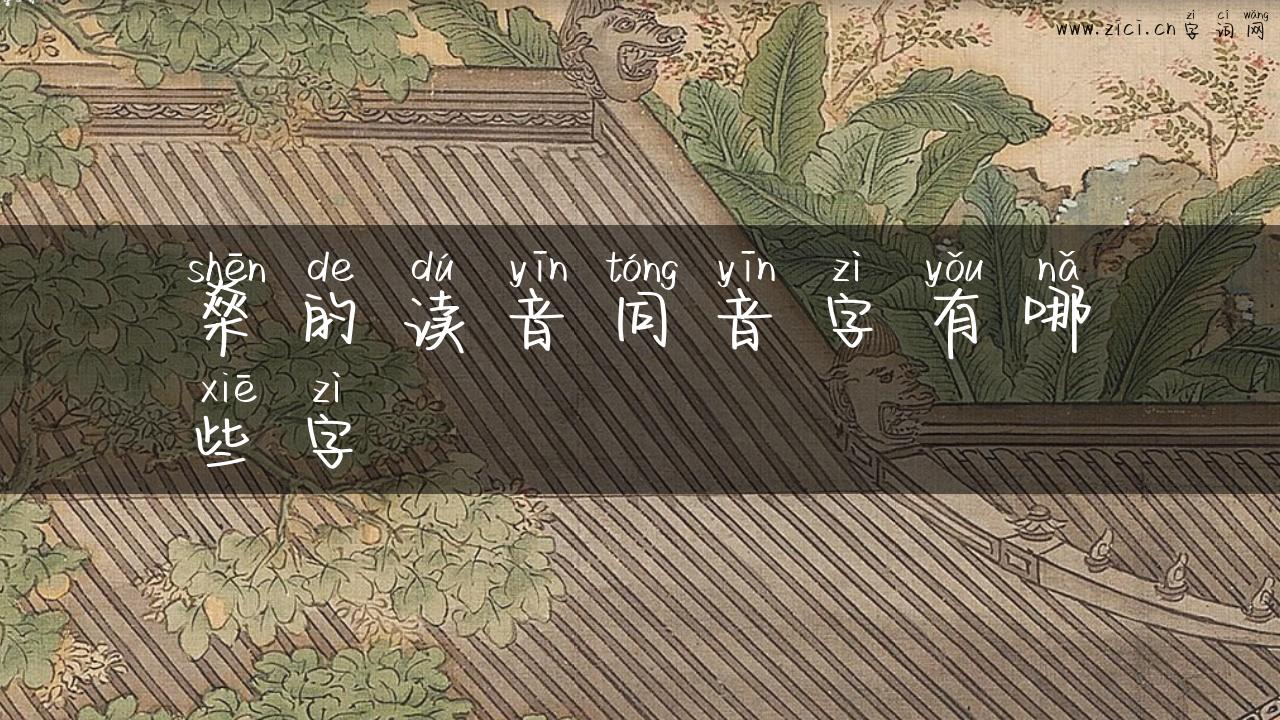 zì cí wǎng
www.zici.cn 字词网
shēn de dú yīn tóng yīn zì yǒu nǎ
燊的读音同音字有哪
xiē zì
些字